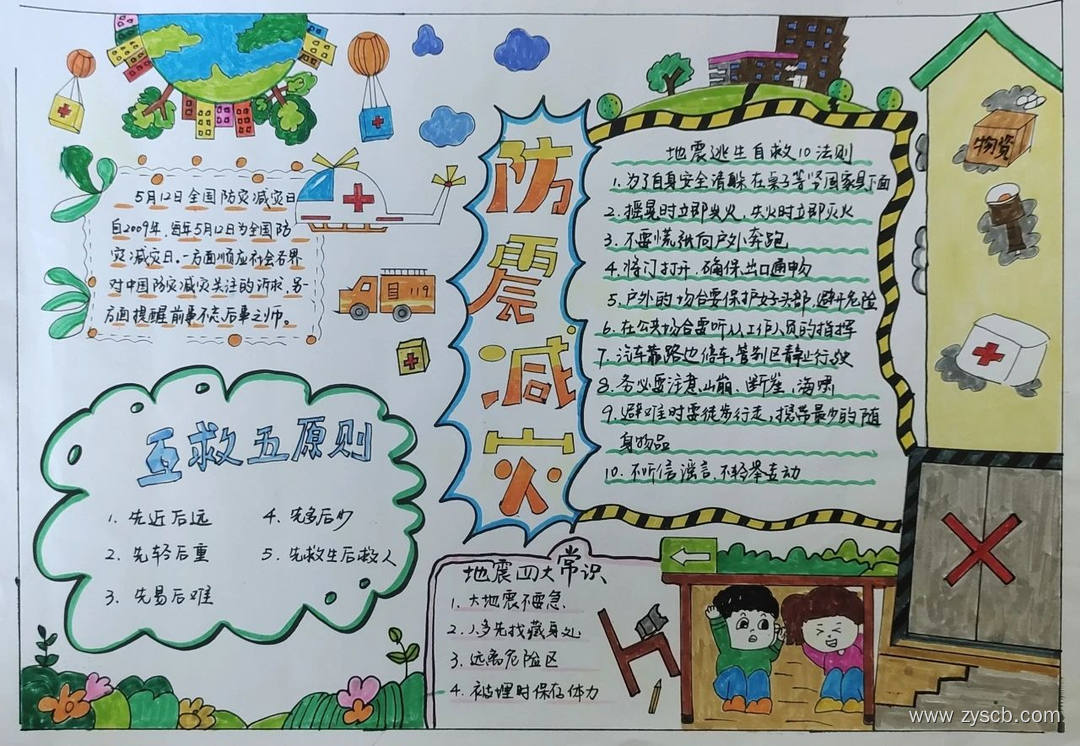 防震减灾
5月12日全国防灾减灾日
自2009年,每年5月12日为全国防
灾减灾日。一方面顺应社会各界
对中国防灾减灾关注的诉求,另一
方面提醒前事不忘后事之师。
119
互救五原则
1. 先近后远
2. 先轻后重
3. 先易后难
4. 先多后少
5. 先救生后救人
地震逃生自救10法则
1. 为了自身安全请躲在桌子等坚固家具下面
2. 摇晃时立即灭火,失火时立即灭火
3. 不要慌张向户外奔跑
4. 将门打开,确保出口通畅
5. 户外的场合要保护好头部,避开危险
6. 在公共场合要听从工作人员的指挥
7. 汽车靠路边停车,管制区禁止行驶
8. 务必要注意山崩、断崖,海啸
9. 避难时要徒步行走,携带最少的随
身物品
10. 不听信谣言,不轻举妄动
地震四大常识
1. 大地震不要急
2. 人多先找藏身处
3. 远离危险区
4. 被埋时保存体力
物资
www.zyscb.com